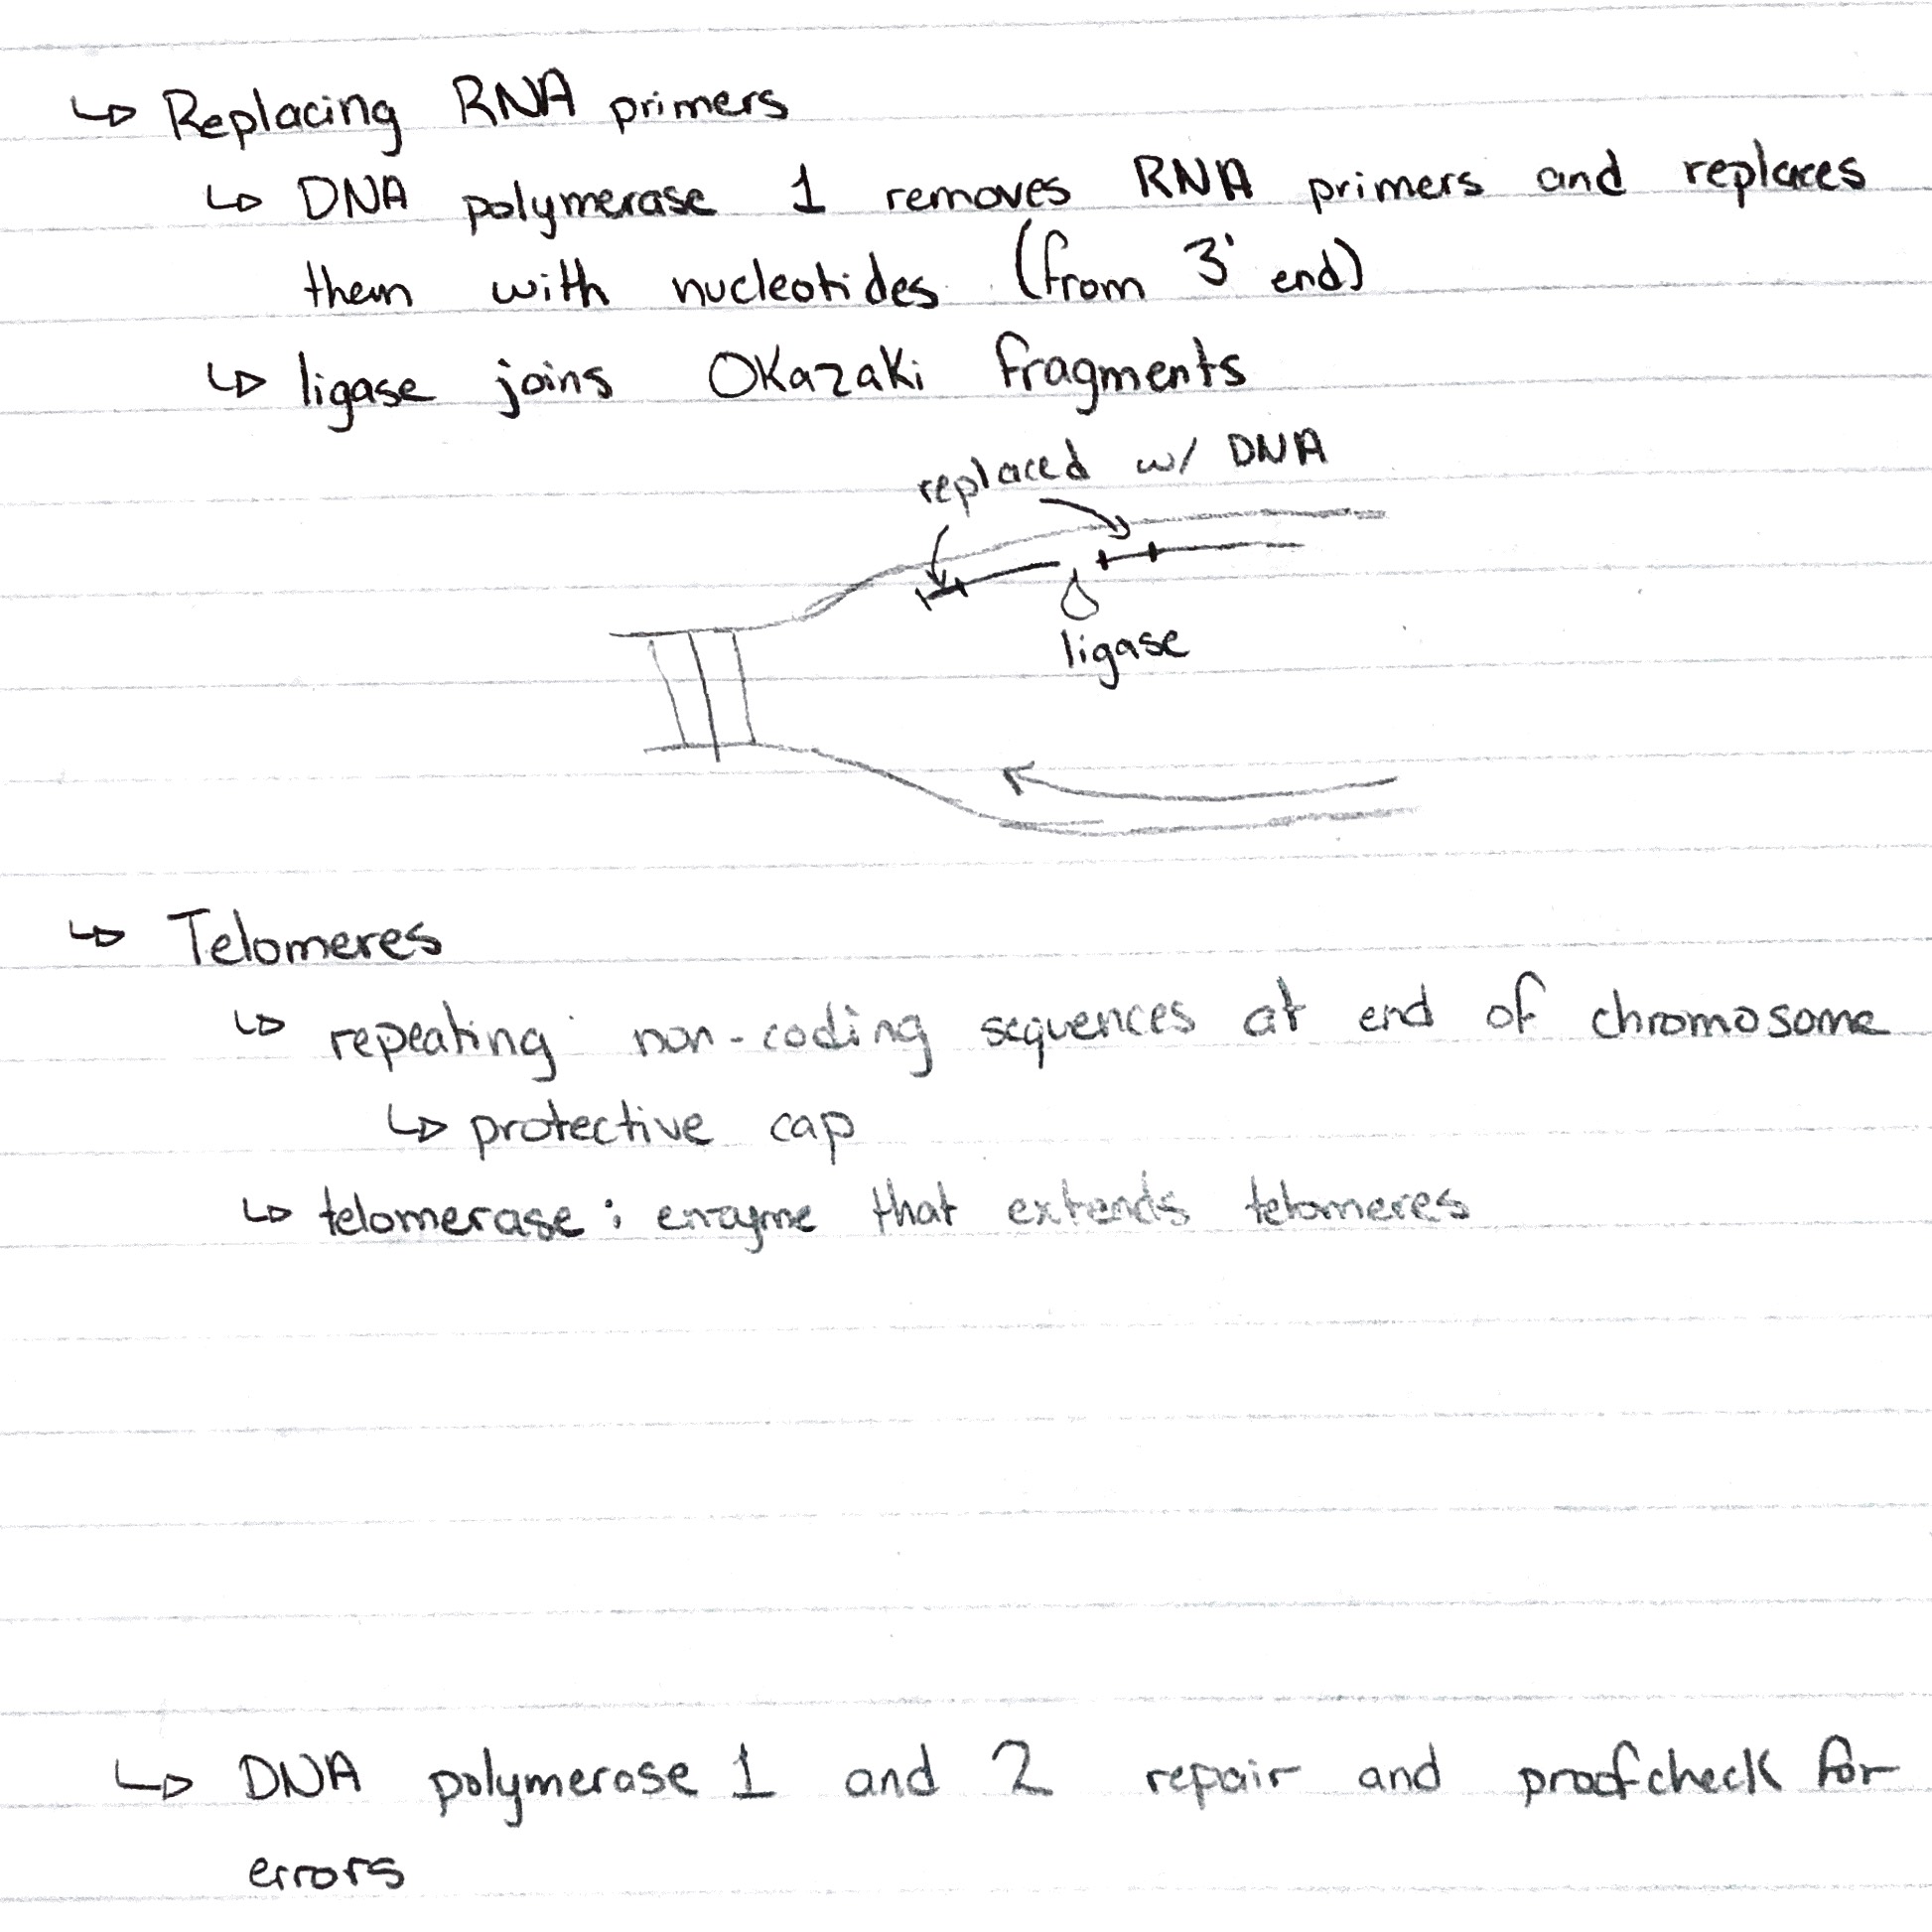 ↳ Replacing RNA primers
↳ DNA polymerase 1 removes RNA primers and replaces
them with nucleotides (from 3' end)
↳ ligase joins Okazaki fragments
replaced w/ DNA
ligase
↳ Telomeres
↳ repeating non-coding sequences at end of chromosome
↳ protective cap
↳ telomerase: enzyme that extends telomeres
↳ DNA polymerase 1 and 2 repair and proofcheck for
errors